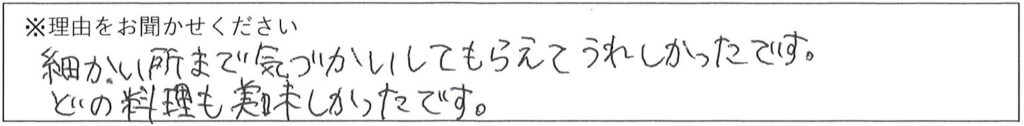 ※理由をお聞かせください
細かい所まで気づかいしてもらえてうれしかったです。
どの料理も美味しかったです。